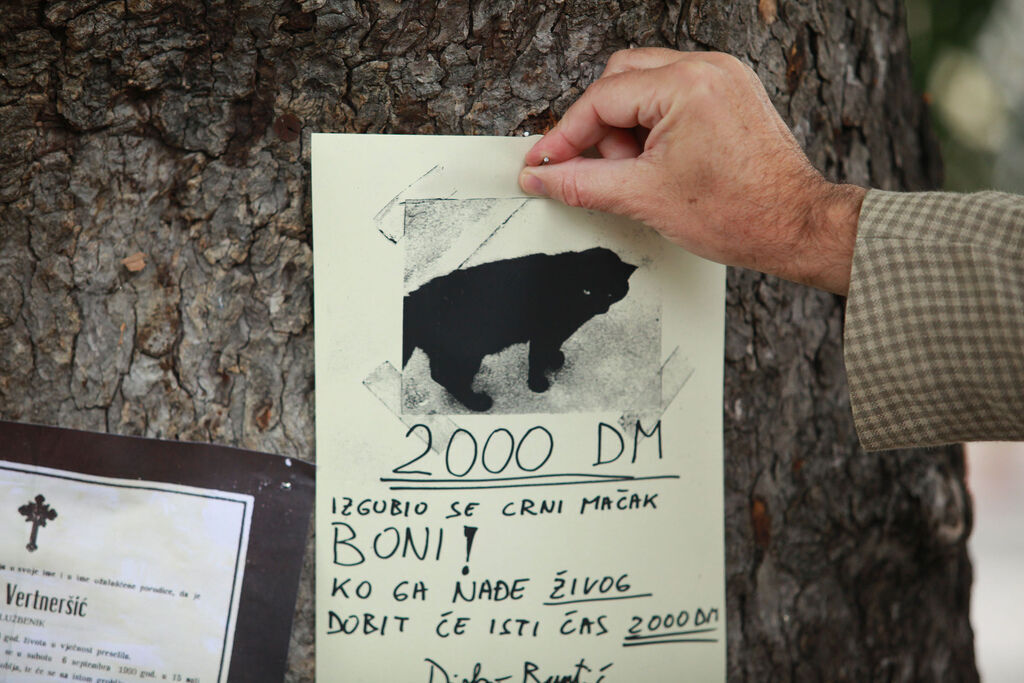 2000 DM
IZGUBIO SE CRNI MAČAK
BONI!
KO GA NAĐE ŽIVOG
DOBIT ĆE ISTI ČAS 2000 DM
u svoje ime i u ime ožalošćene porodice, da je
Vertneršić
SLUŽBENIK
god. života u vječnost preselila.
se u subotu 6 septembra 1990 god. u 15 sati